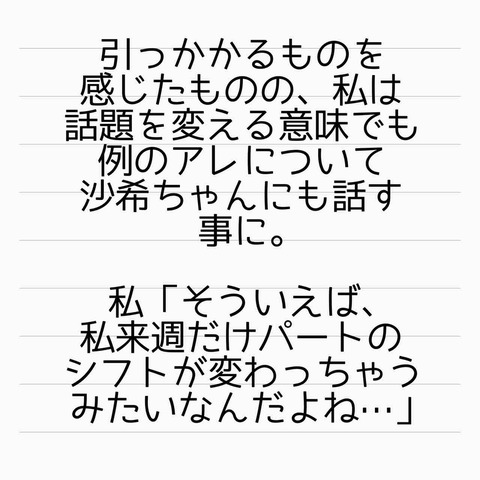 引っかかるものを
感じたものの、私は
話題を変える意味でも
例のアレについて
沙希ちゃんにも話す
事に。
私「そういえば、
私来週だけパートの
シフトが変わっちゃう
みたいなんだよね…」